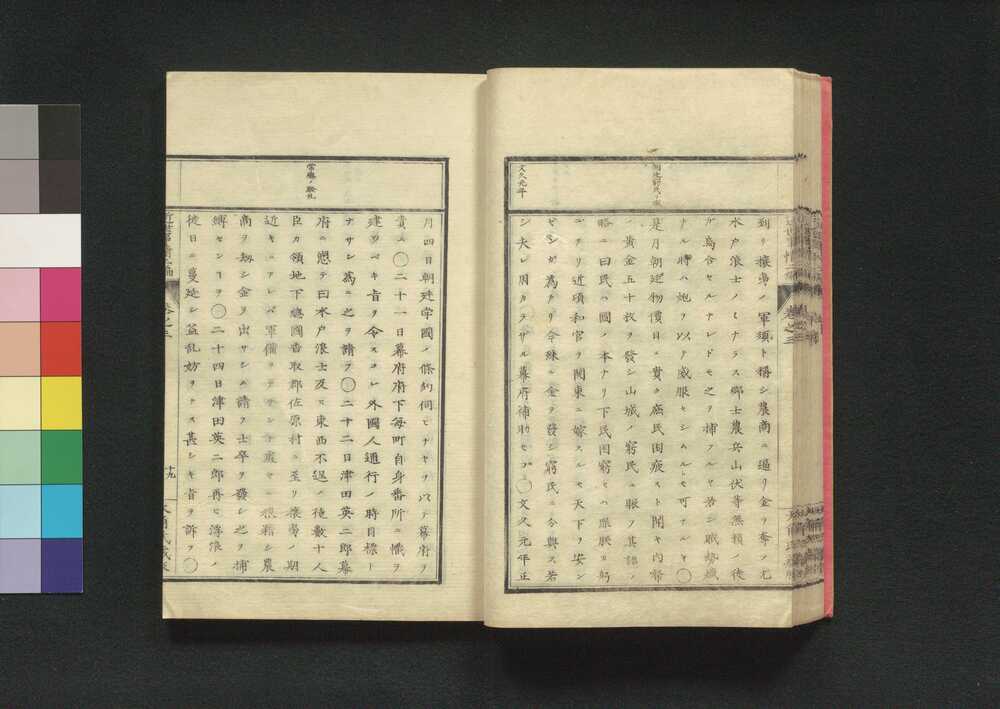 文久元年
到リ攘夷ノ軍須ト稱シ農商ニ逼リ金ヲ奪フ尤
水戸浪士ノミナラス郷士農兵山伏等無頼ノ徒
烏合セルナレドモ之ヲ捕フルヤ若シ職勢熾
ナル時ハ炮ヲ以テ威服セシムルモ可ナルヤ〇
是月朝廷物價日ニ貴ク庶民困疲スト聞キ内帑
ノ黄金五十枚ヲ發シ山城ノ窮民ニ賑フ其詔ノ
略ニ曰民ハ國ノ本ナリ下民困窮セハ是朕カ躬
ニアリ近頃和宮ヲ関東ニ嫁スルモ天下ヲ安ン
ゼンガ為ナリ今練ル金ヲ發シ窮民ニ分與ス若
シ夫レ周カラサル幕府補助セヨ〇文久元年正
月四日朝廷字國ノ條約伺ヒナキヲ以テ幕府ヲ
責ム〇二十一日幕府府下毎町自身番所ニ幟ヲ
建ツベキ旨ヲ令ス是レ外國人通行ノ時目標ト
ナサン為ニ之ヲ請フ〇二十二日津田英二郎幕
府ニ愬テ曰水戸浪士及ヒ東西不逞ノ徒數十人
臣カ領地下總國香取郡佐原村ニ至リ攘夷ノ期
近キニアレバ軍備
商ヲ劫シ金ヲ出サシム請フ士卒ヲ發シ之ヲ捕
縛セン〇二十四日津田英二郎再ヒ浮浪ノ
徒日ニ蔓延シ益乱妨ヲナス甚シキ旨ヲ訴フ〇
十九